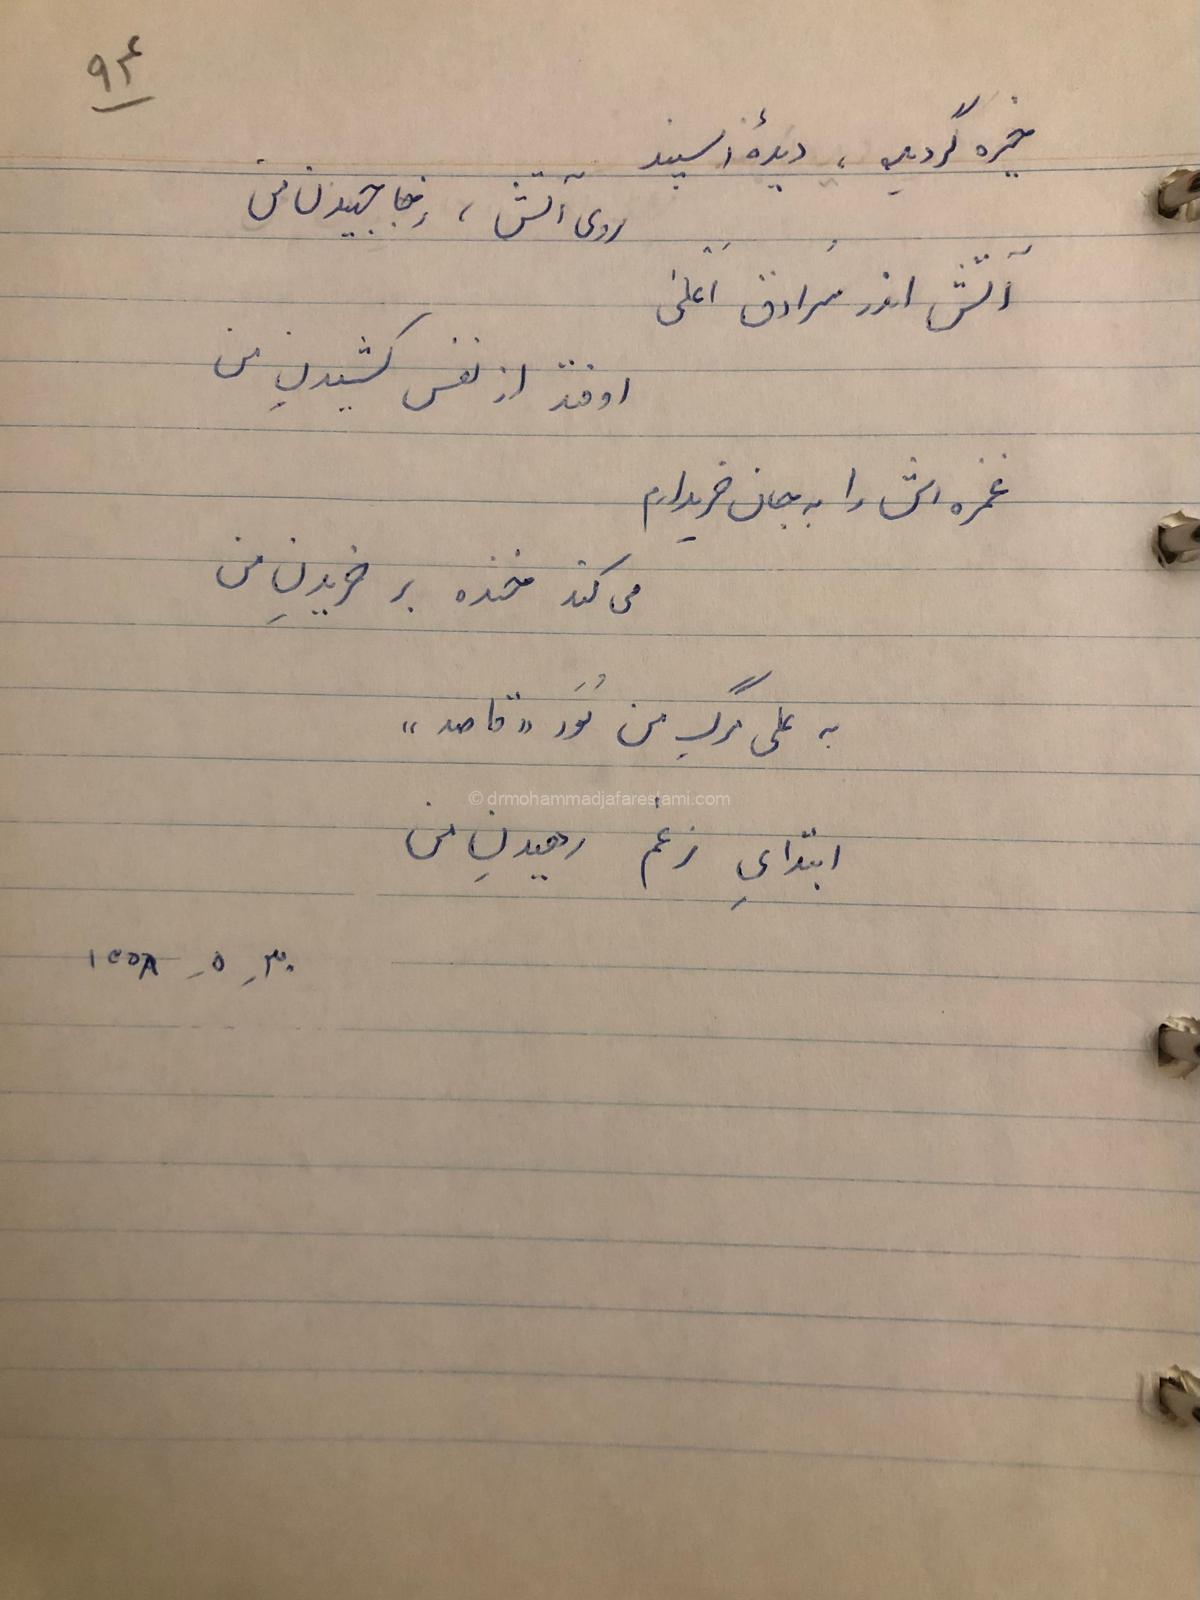 ۹۴
خیره گردید ، دیدهٔ اسپند
روی آتش ، جهیدن من
آتش اندر سُرادق اَعْلیٰ
اوفتد از نفس کشیدنِ من
غمزه اش را به جان خریدارم
می کند خنده بر خریدنِ من
به علی مرگِ من بُوَد «قاصد»
ابتدایِ زغم رهیدنِ من
© drmohammadjafareslami.com
۱۳۵۸ ـ ۵ ـ ۳۰